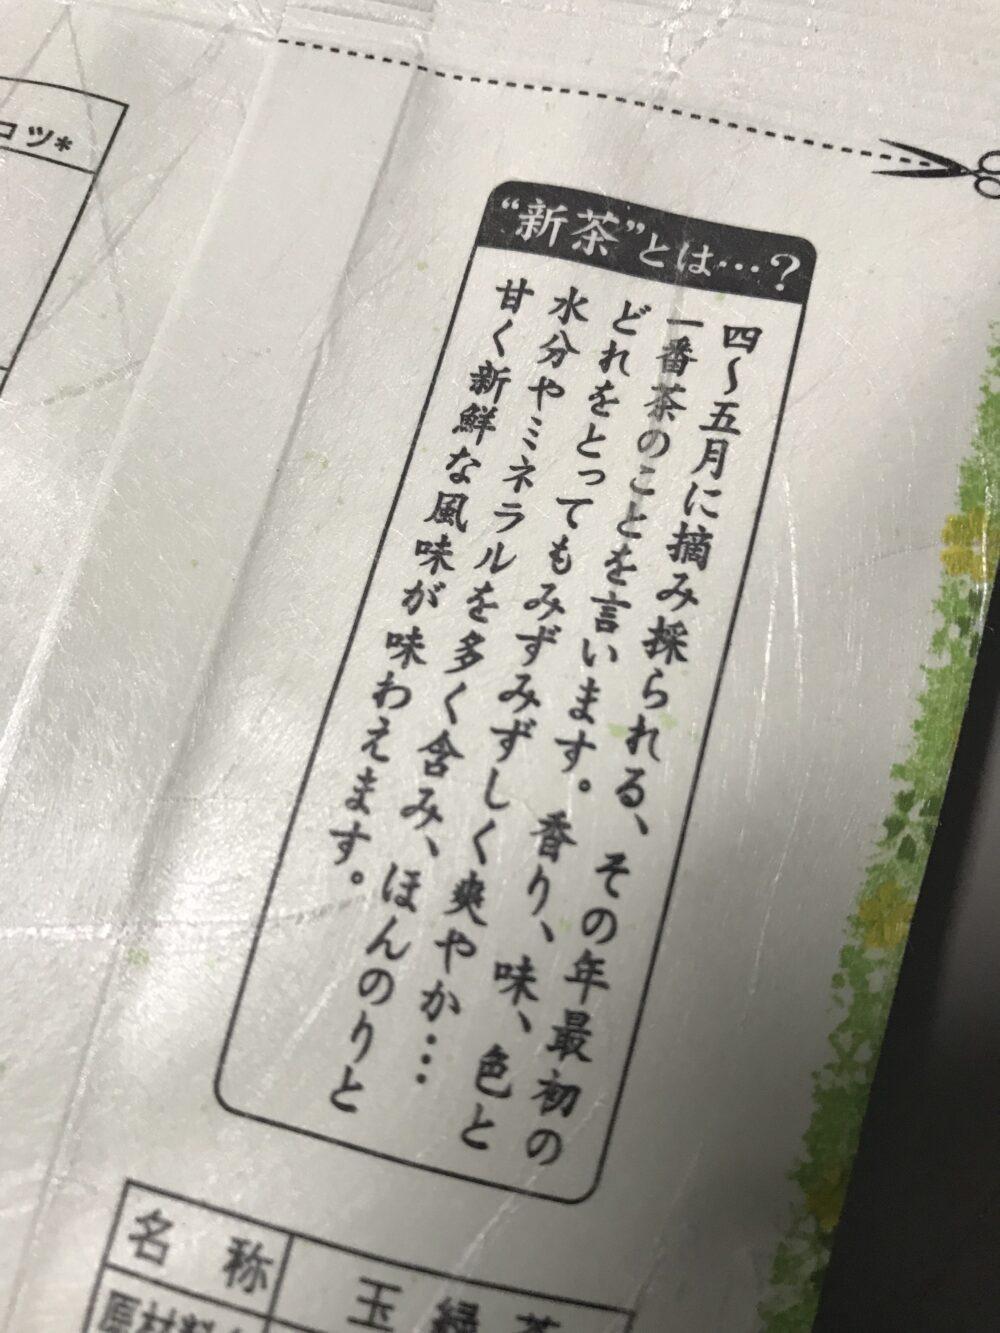 コツ*
“新茶”とは…?
四〜五月に摘み採られる、その年最初の
一番茶のことを言います。香り、味、色と
どれをとってもみずみずしく爽やか…
水分やミネラルを多く含み、ほんのりと
甘く新鮮な風味が味わえます。
名称
玉緑茶
原材料